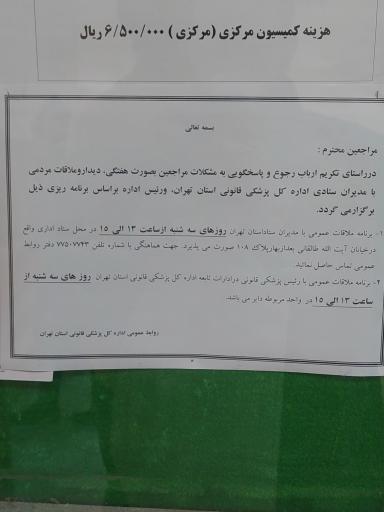 هزینه کمیسیون مرکزی (مرکزی) ۶/۵۰۰/۰۰۰ ریال
بسمه تعالی
مراجعین محترم :
درراستای تکریم ارباب رجوع و پاسخگویی به مشکلات مراجعین بصورت هفتگی، دیداروملاقات مردمی
با مدیران ستادی اداره کل پزشکی قانونی استان تهران، ورئیس اداره براساس برنامه ریزی ذیل
برگزارمی گردد.
۱- برنامه ملاقات عمومی با مدیران ستاداستان تهران روزهای سه شنبه ازساعت ۱۳ الی ۱۵ در محل ستاد اداری واقع
درخیابان آیت الله طالقانی بعدازبهارپلاک ۱۰۸ صورت می پذیرد. جهت هماهنگی با شماره تلفن ۷۷۵۰۷۷۴۳ دفتر روابط
عمومی تماس حاصل نمائید.
۲- برنامه ملاقات عمومی با رئیس پزشکی قانونی درادارات تابعه اداره کل پزشکی قانونی استان تهران روز های سه شنبه از
ساعت ۱۳ الی ۱۵ در واحد مربوطه دایر می باشد.
روابط عمومی اداره کل پزشکی قانونی استان تهران